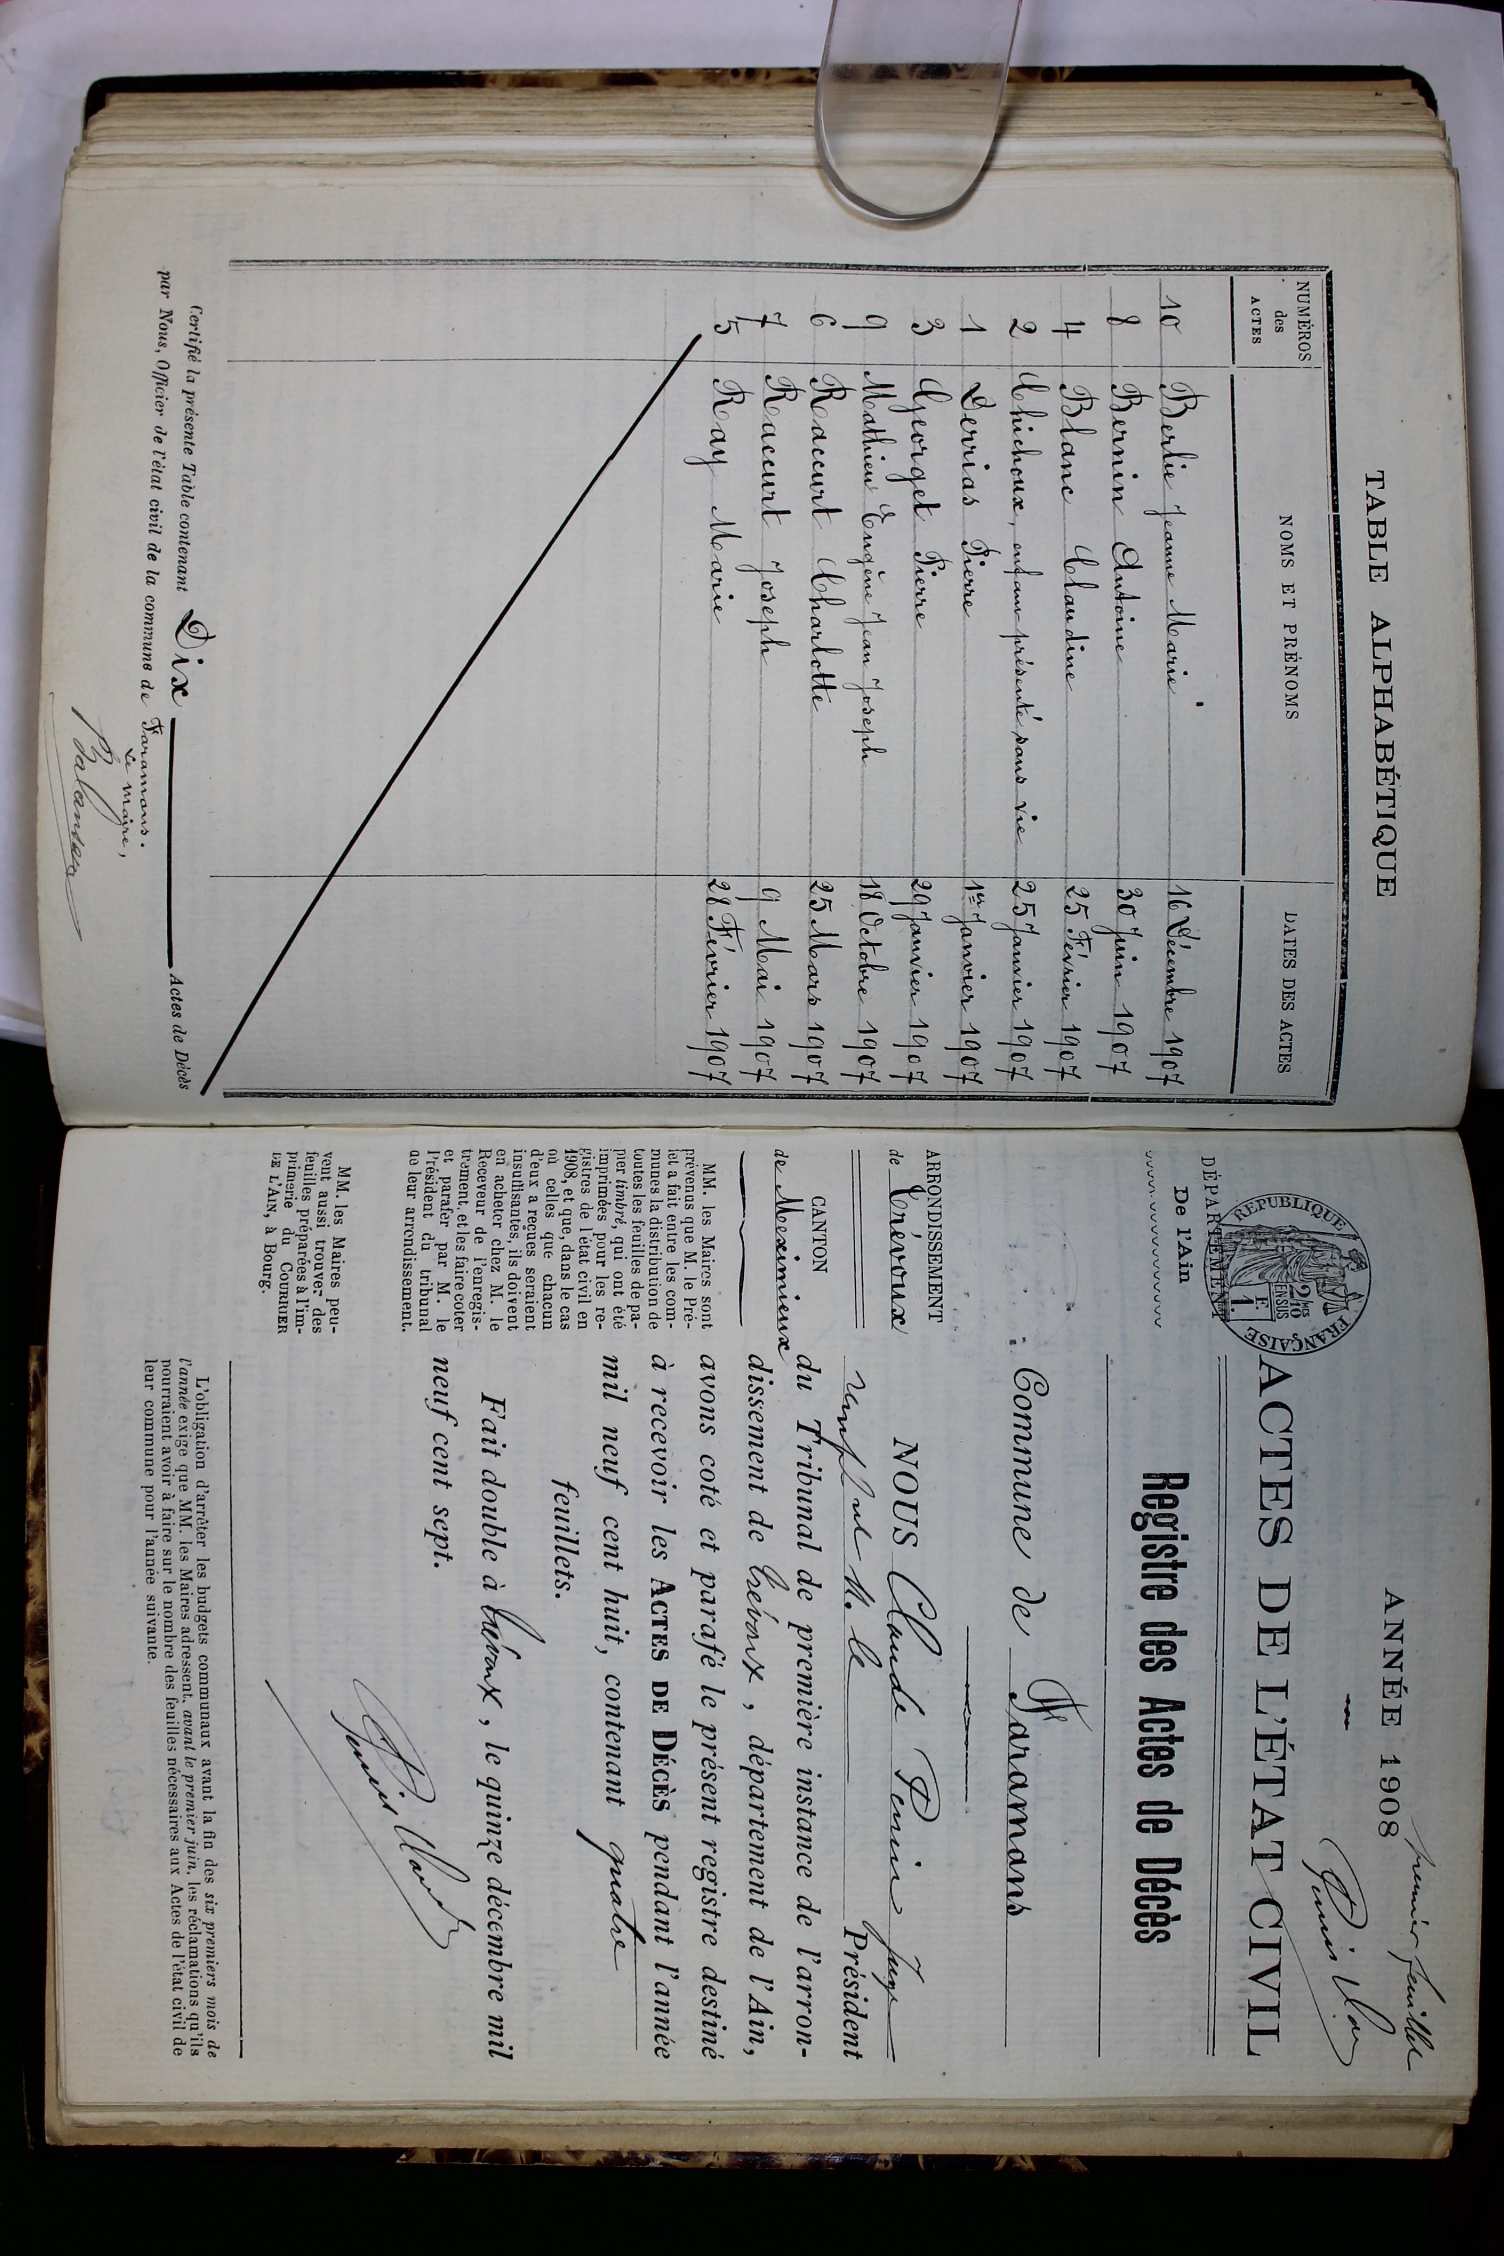 TABLE ALPHABÉTIQUE
NUMÉROS
des
ACTES
NOMS ET PRÉNOMS
DATES DES ACTES
10 Berlie Jeanne Marie 16 Décembre 1907
8 Bernin Antoine 30 Juin 1907
4 Blanc Claudine 25 Février 1907
2 Chichoux, enfant présenté sans vie 25 Janvier 1907
1 Derrias Pierre 1er Janvier 1907
3 Georget Pierre 29 Janvier 1907
9 Mathieu Eugène Jean Joseph 18 Octobre 1907
6 Raccurt Charlotte 25 Mars 1907
7 Raccurt Joseph 9 Mai 1907
5 Ray Marie 28 Février 1907
Certifié la présente Table contenant Dix Actes de Décès
par Nous, Officier de l'état civil de la commune de Faramans.
Le Maire,
premier feuillet
ANNÉE 1908
RÉPUBLIQUE FRANÇAISE
2/10 EN SUS
1 F.
ACTES DE L'ÉTAT CIVIL
DÉPARTEMENT
De l'Ain
Registre des Actes de Décès
Commune de Faramans
ARRONDISSEMENT
de Trévoux
CANTON
de Meximieux
MM. les Maires sont
prévenus que M. le Pré-
fet a fait entre les com-
munes la distribution de
toutes les feuilles de pa-
pier timbré, qui ont été
imprimées pour les re-
gistres de l'état civil en
1908, et que, dans le cas
où celles que chacun
d'eux a reçues seraient
insuffisantes, ils doivent
en acheter chez M. le
Receveur de l'enregis-
trement, et les faire coter
et parafer par M. le
Président du tribunal
de leur arrondissement.
MM. les Maires peu-
vent aussi trouver des
feuilles préparées à l'im-
primerie du COURRIER
DE L'AIN, à Bourg.
NOUS Claude Perrin Juge
remplt M. le Président
du Tribunal de première instance de l'arron-
dissement de Trévoux, département de l'Ain,
avons coté et parafé le présent registre destiné
à recevoir les ACTES DE DÉCÈS pendant l'année
mil neuf cent huit, contenant quatre
feuillets.
Fait double à Trévoux, le quinze décembre mil
neuf cent sept.
L'obligation d'arrêter les budgets communaux avant la fin des six premiers mois de
l'année exige que MM. les Maires adressent, avant le premier juin, les réclamations qu'ils
pourraient avoir à faire sur le nombre des feuilles nécessaires aux Actes de l'état civil de
leur commune pour l'année suivante.